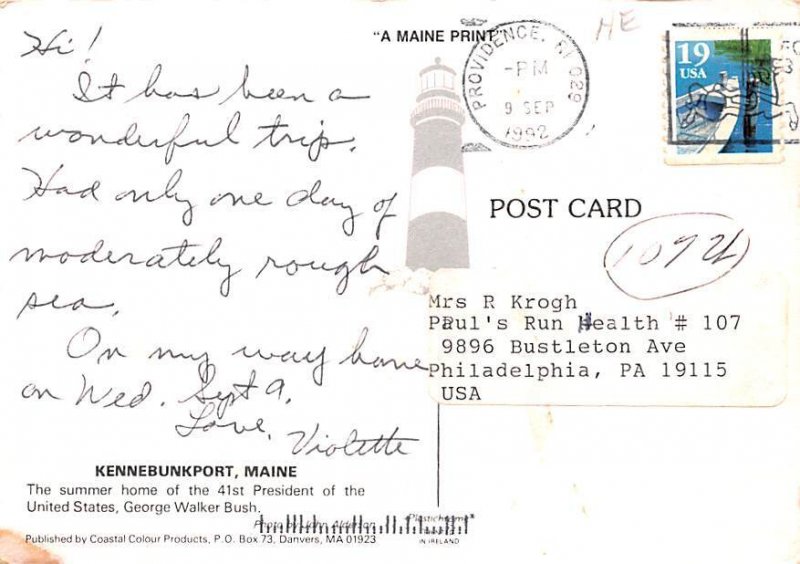 "A MAINE PRINT"
HE
Hi!
It has been a
wonderful trip.
Had only one day of
moderately rough
sea.
On my way home
on Wed. Sept 9.
Love,
Violette
KENNEBUNKPORT, MAINE
The summer home of the 41st President of the
United States, George Walker Bush.
Photo by John Alderson
Published by Coastal Colour Products, P.O. Box 73, Danvers, MA 01923
Plastichrome®
IN IRELAND
PROVIDENCE, RI 029
-PM
9 SEP
1992
19
USA
POST CARD
Mrs R Krogh
Paul's Run Health # 107
9896 Bustleton Ave
Philadelphia, PA 19115
USA